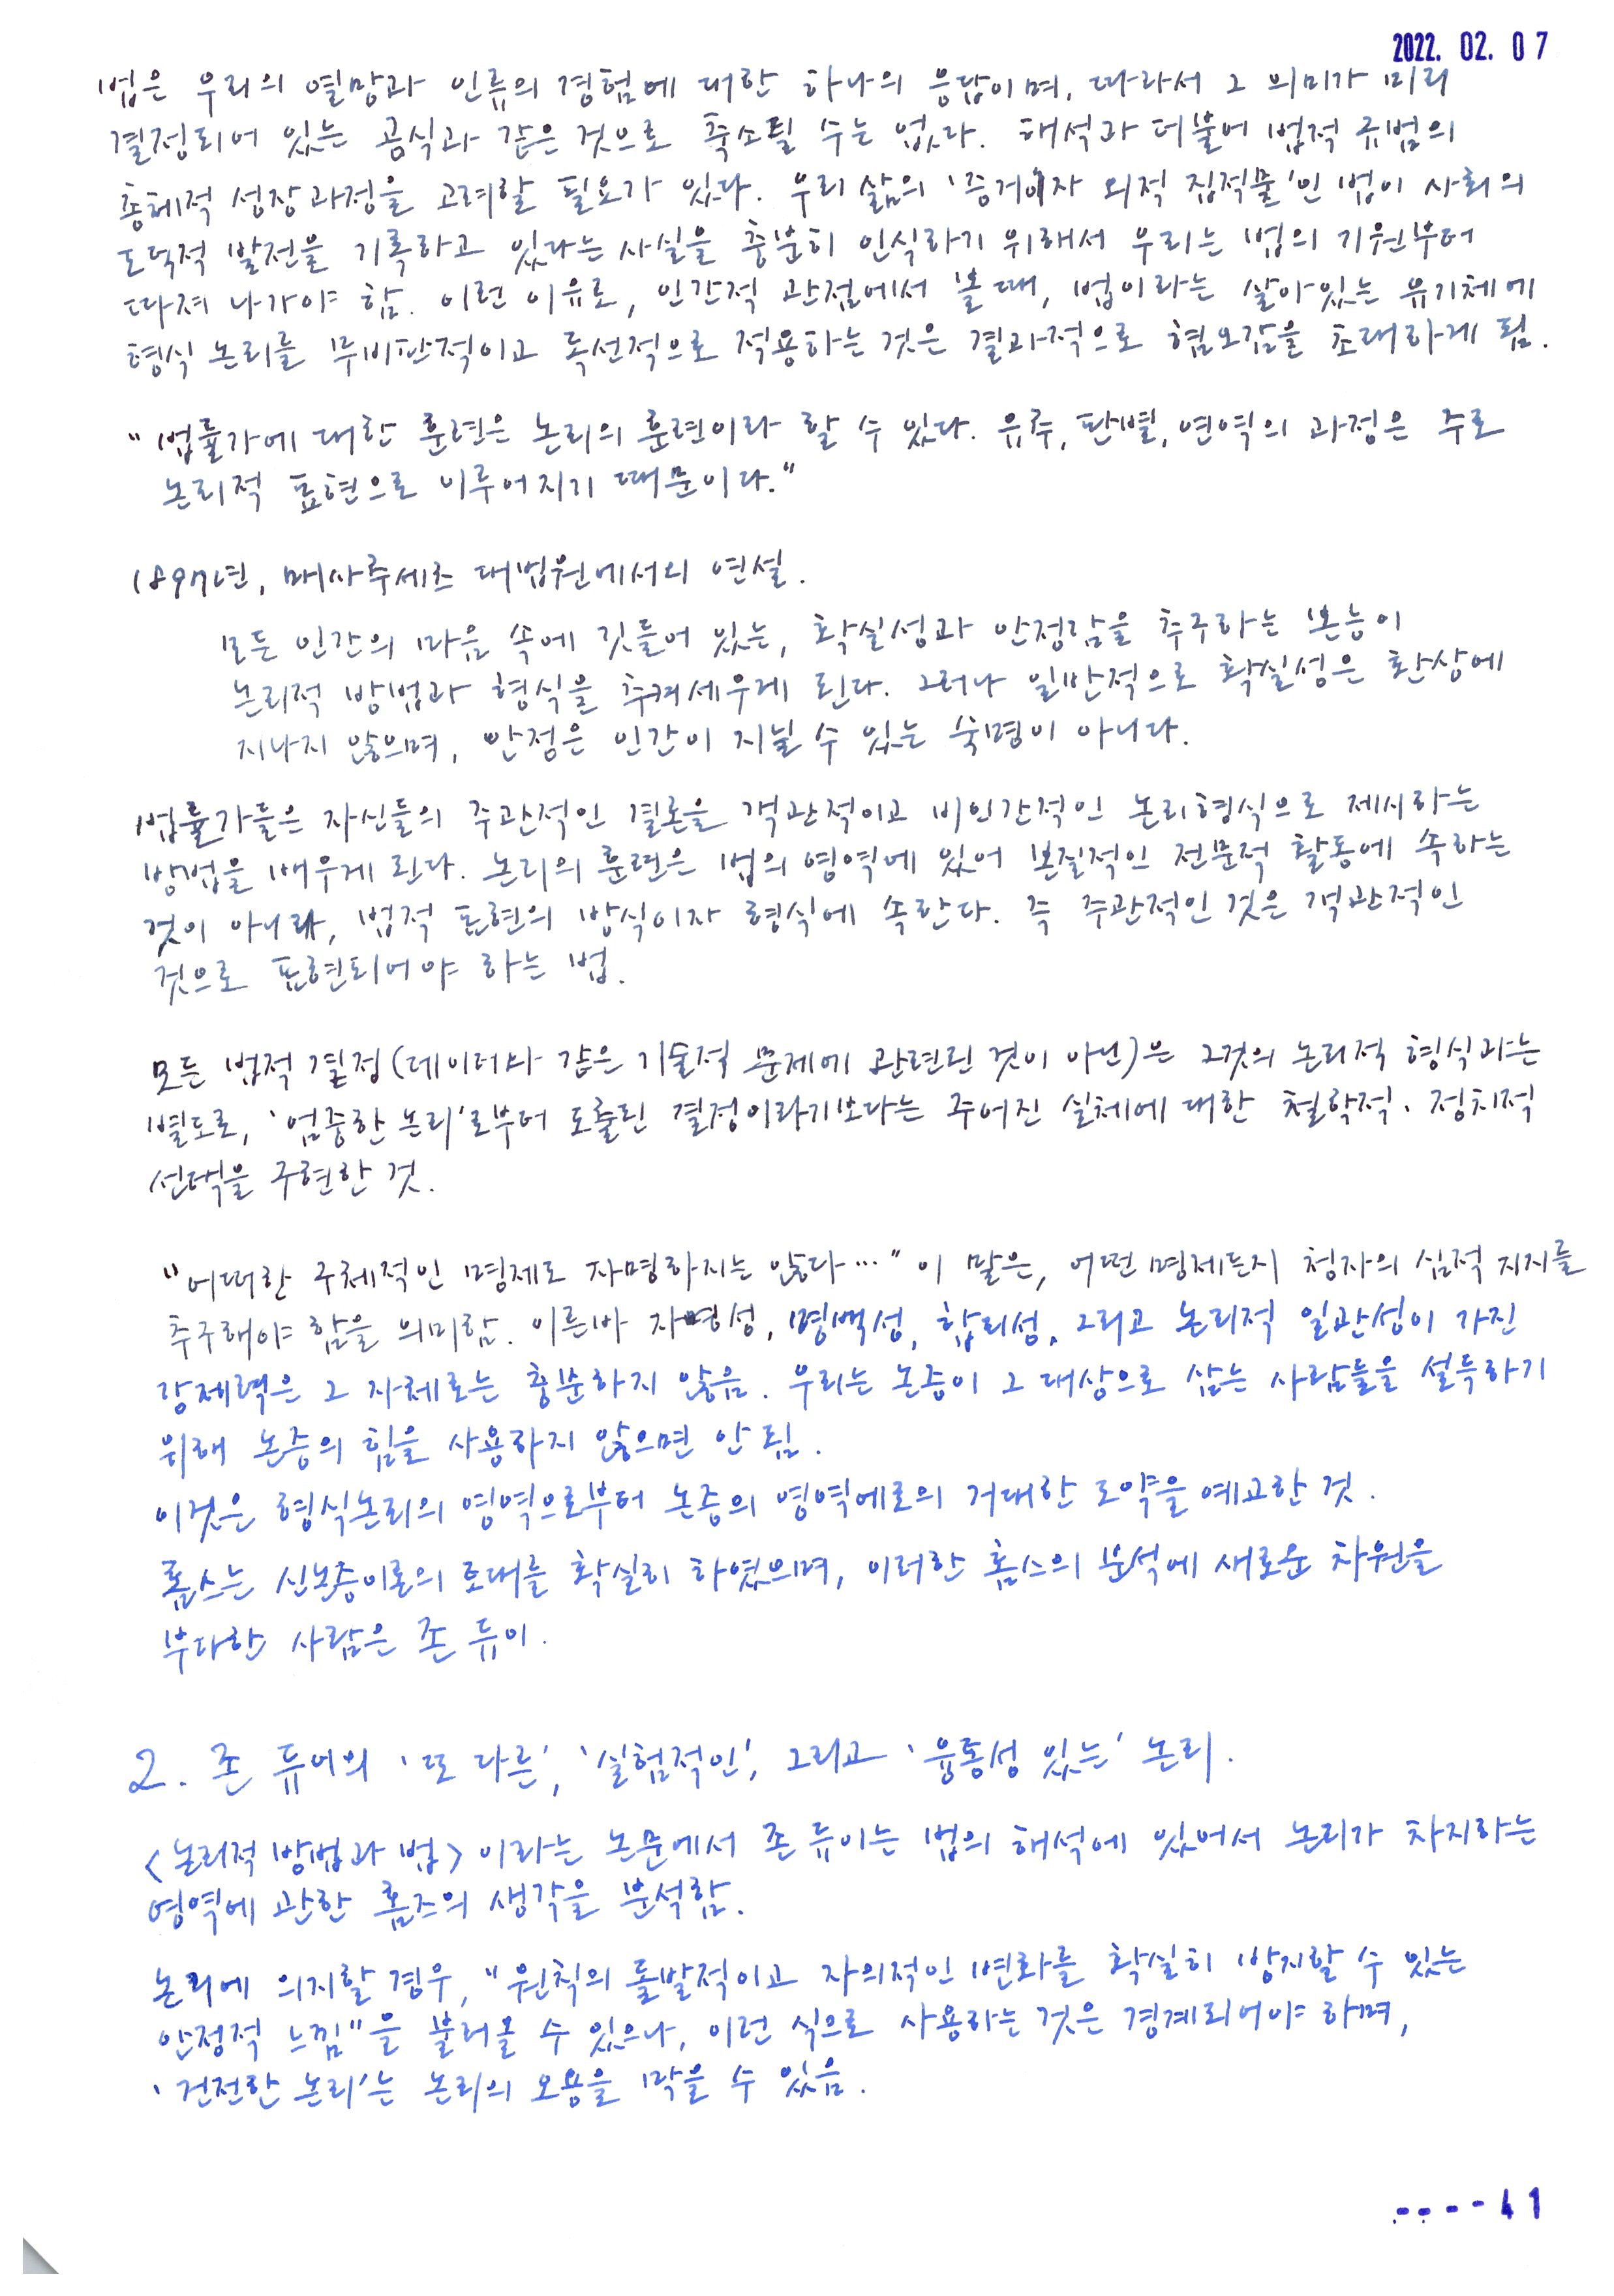 2022. 02. 07
법은 우리의 열망과 인류의 경험에 대한 하나의 응답이며, 따라서 그 의미가 미리
결정되어 있는 공식과 같은 것으로 축소될 수는 없다. 해석과 더불어 법적 규범의
총체적 성장과정을 고려할 필요가 있다. 우리 삶의 '증거이자 외적 집적물'인 법이 사회의
도덕적 발전을 기록하고 있다는 사실을 충분히 인식하기 위해서 우리는 법의 기원부터
따져 나가야 함. 이런 이유로, 인간적 관점에서 볼 때, 법이라는 살아있는 유기체에
형식 논리를 무비판적이고 독선적으로 적용하는 것은 결과적으로 혐오감을 초래하게 됨.
"법률가에 대한 훈련은 논리의 훈련이라 할 수 있다. 유추, 판별, 연역의 과정은 주로
논리적 표현으로 이루어지기 때문이다."
1897년, 매사추세츠 대법원에서의 연설.
모든 인간의 마음 속에 깃들어 있는, 확실성과 안정감을 추구하는 본능이
논리적 방법과 형식을 추켜세우게 된다. 그러나 일반적으로 확실성은 환상에
지나지 않으며, 안정은 인간이 지닐 수 있는 숙명이 아니다.
법률가들은 자신들의 주관적인 결론을 객관적이고 비인간적인 논리형식으로 제시하는
방법을 배우게 된다. 논리의 훈련은 법의 영역에 있어 본질적인 전문적 활동에 속하는
것이 아니라, 법적 표현의 방식이자 형식에 속한다. 즉 주관적인 것은 객관적인
것으로 표현되어야 하는 법.
모든 법적 결정(데이터와 같은 기술적 문제에 관련된 것이 아닌)은 그것의 논리적 형식과는
별도로, '엄중한 논리'로부터 도출된 결정이라기보다는 주어진 실체에 대한 철학적·정치적
선택을 구현한 것.
"어떠한 구체적인 명제도 자명하지는 않다…" 이 말은, 어떤 명제든지 청자의 심적 지지를
추구해야 함을 의미함. 이른바 자명성, 명백성, 합리성, 그리고 논리적 일관성이 가진
강제력은 그 자체로는 충분하지 않음. 우리는 논증이 그 대상으로 삼는 사람들을 설득하기
위해 논증의 힘을 사용하지 않으면 안 됨.
이것은 형식논리의 영역으로부터 논증의 영역에로의 거대한 도약을 예고한 것.
홈스는 신논증이론의 토대를 확실히 하였으며, 이러한 홈스의 분석에 새로운 차원을
부다한 사람은 존 듀이.
2. 존 듀이의 '또 다른', '실험적인', 그리고 '융통성 있는' 논리.
<논리적 방법과 법> 이라는 논문에서 존 듀이는 법의 해석에 있어서 논리가 차지하는
영역에 관한 홈즈의 생각을 분석함.
논리에 의지할 경우, "원칙의 돌발적이고 자의적인 변화를 확실히 방지할 수 있는
안정적 느낌"을 불러올 수 있으나, 이런 식으로 사용하는 것은 경계되어야 하며,
'건전한 논리'는 논리의 오용을 막을 수 있음.
----41